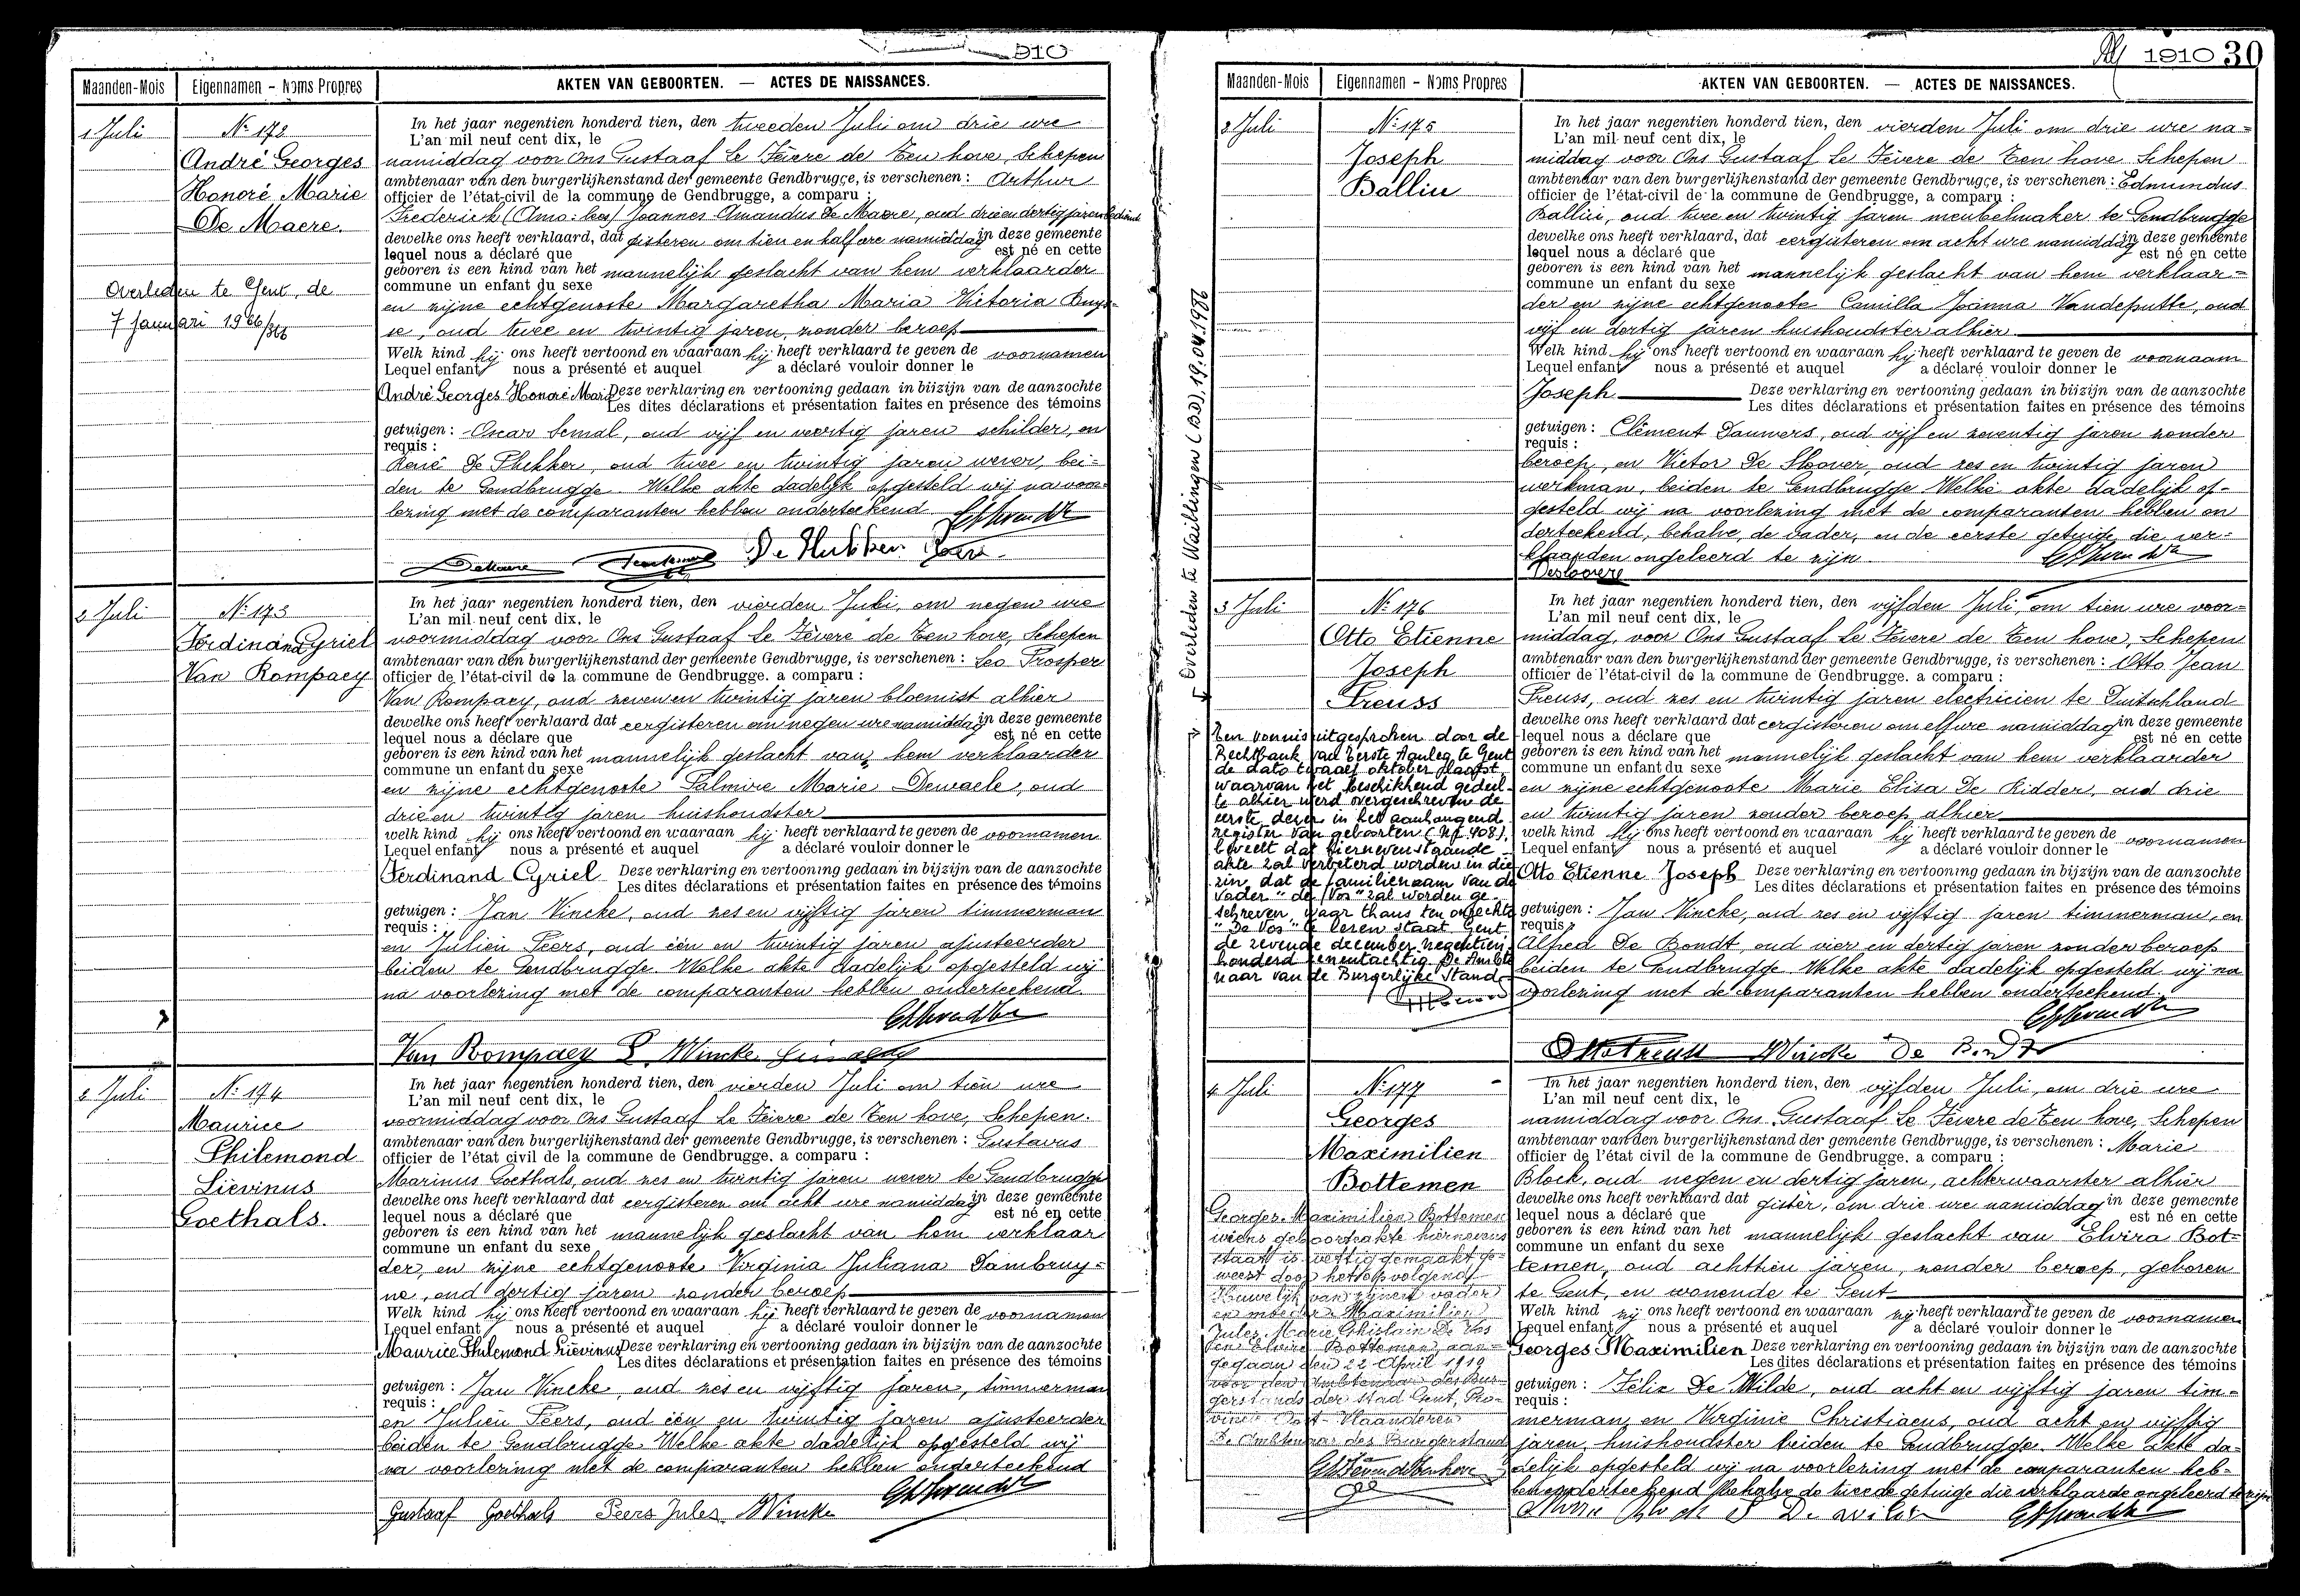 910
Maanden-Mois Eigennamen - Noms Propres AKTEN VAN GEBOORTEN. — ACTES DE NAISSANCES.
1 Juli
Nr 172
André Georges
Honoré Marie
De Maere.
Overleden te Gent, de
7 januari 1966/366
In het jaar negentien honderd tien, den tweeden Juli om drie ure
L'an mil neuf cent dix, le
namiddag voor Ons Gustaaf Le Fèvere de Ten hove, Schepen
ambtenaar van den burgerlijkenstand der gemeente Gendbrugge, is verschenen : Arthur
officier de l'état-civil de la commune de Gendbrugge, a comparu :
Frederick (Amo: lees) Joannes Amandus De Maere, oud drie en dertig jaren bediende
dewelke ons heeft verklaard, dat gisteren om tien en half ure namiddag in deze gemeente
lequel nous a déclaré que est né en cette
geboren is een kind van het mannelijk geslacht van hem verklaarder
commune un enfant du sexe
en zijne echtgenoote Margaretha Maria Victoria Buys-
se, oud twee en twintig jaren, zonder beroep
Welk kind hij ons heeft vertoond en waaraan hij heeft verklaard te geven de voornamen
Lequel enfant nous a présenté et auquel a déclaré vouloir donner le
André Georges Honoré Marie Deze verklaring en vertooning gedaan in bijzijn van de aanzochte
Les dites déclarations et présentation faites en présence des témoins
getuigen : Oscar Semal, oud vijf en veertig jaren schilder, en
requis :
René De , oud twee en twintig jaren wever, bei=
den te Gendbrugge. Welke akte dadelijk opgesteld wij na voor=
lezing met de comparanten hebben onderteekend
2 Juli
Nr 173
Ferdinand Cyriel
Van Rompaey
In het jaar negentien honderd tien, den vierden Juli, om negen ure
L'an mil neuf cent dix, le
voormiddag voor Ons Gustaaf Le Fèvere de Ten hove, Schepen
ambtenaar van den burgerlijkenstand der gemeente Gendbrugge, is verschenen : Leo Prosper
officier de l'état-civil de la commune de Gendbrugge. a comparu :
Van Rompaey, oud zeven en twintig jaren bloemist alhier
dewelke ons heeft verklaard dat eergisteren om negen ure namiddag in deze gemeente
lequel nous a déclare que est né en cette
geboren is een kind van het mannelijk geslacht van hem verklaarder
commune un enfant du sexe
en zijne echtgenoote Palmire Marie Dewaele, oud
drie en twintig jaren huishoudster
welk kind hij ons heeft vertoond en waaraan hij heeft verklaard te geven de voornamen
Lequel enfant nous a présenté et auquel a déclaré vouloir donner le
Ferdinand Cyriel Deze verklaring en vertooning gedaan in bijzijn van de aanzochte
Les dites déclarations et présentation faites en présence des témoins
getuigen : Jan Vincke, oud zes en vijftig jaren timmerman
requis :
en Julien Peers, oud één en twintig jaren ajusteerder
beiden te Gendbrugge. Welke akte dadelijk opgesteld wij
na voorlezing met de comparanten hebben onderteekend.
Van Rompaey L. Wincke
2 Juli
Nr 174
Maurice
Philemond
Liévinus
Goethals.
In het jaar negentien honderd tien, den vierden Juli om tien ure
L'an mil neuf cent dix, le
voormiddag voor Ons Gustaaf Le Fèvere de Ten hove, Schepen.
ambtenaar van den burgerlijkenstand der gemeente Gendbrugge, is verschenen : Gustavus
officier de l'état civil de la commune de Gendbrugge. a comparu :
Marinus Goethals, oud zes en twintig jaren wever te Gendbrugge
dewelke ons heeft verklaard dat eergisteren om acht ure namiddag in deze gemeente
lequel nous a déclaré que est né en cette
geboren is een kind van het mannelijk geslacht van hem verklaar
commune un enfant du sexe
der, en zijne echtgenoote Virginia Juliana Dambruy=
ne, oud dertig jaren zonder beroep
Welk kind hij ons heeft vertoond en waaraan hij heeft verklaard te geven de voornamen
Lequel enfant nous a présenté et auquel a déclaré vouloir donner le
Maurice Philemond Liévinus Deze verklaring en vertooning gedaan in bijzijn van de aanzochte
Les dites déclarations et présentation faites en présence des témoins
getuigen : Jan Vincke, oud zes en vijftig jaren, timmerman
requis :
en Julien Peers, oud één en twintig jaren ajusteerder
beiden te Gendbrugge. Welke akte dadelijk opgesteld wij
na voorlezing met de comparanten hebben onderteekend
Gustaaf Goethals Peers Jules Wincke
1910 30
Maanden-Mois Eigennamen - Noms Propres AKTEN VAN GEBOORTEN. — ACTES DE NAISSANCES.
2 Juli
Nr 175
Joseph
Balliu
In het jaar negentien honderd tien, den vierden Juli om drie ure na=
L'an mil neuf cent dix, le
middag voor Ons Gustaaf Le Fèvere de Ten hove Schepen
ambtenaar van den burgerlijkenstand der gemeente Gendbrugge, is verschenen : Edmundus
officier de l'état-civil de la commune de Gendbrugge, a comparu :
Balliu, oud twee en twintig jaren meubelmaker te Gendbrugge
dewelke ons heeft verklaard, dat eergisteren om acht ure namiddag in deze gemeente
lequel nous a déclaré que est né en cette
geboren is een kind van het mannelijk geslacht van hem verklaar=
commune un enfant du sexe
der en zijne echtgenoote Camilla Joanna Vandeputte, oud
vijf en dertig jaren huishoudster alhier
Welk kind hij ons heeft vertoond en waaraan hij heeft verklaard te geven de voornaam
Lequel enfant nous a présenté et auquel a déclaré vouloir donner le
Joseph Deze verklaring en vertooning gedaan in bijzijn van de aanzochte
Les dites déclarations et présentation faites en présence des témoins
getuigen : Clément Dauwers, oud vijf en zeventig jaren zonder
requis :
beroep, en Victor De Sloover, oud zes en twintig jaren
werkman, beiden te Gendbrugge. Welke akte dadelijk op-
gesteld wij na voorlezing met de comparanten hebben on
derteekend, behalve, de vader, en de eerste getuige die ver=
klaarden ongeleerd te zijn.
Overleden te Waiblingen (B.D.), 19.04.1986
3 Juli
Nr 176
Otto Etienne
Joseph
Preuss
In het jaar negentien honderd tien, den vijfden Juli, om tien ure voor=
L'an mil neuf cent dix, le
middag, voor Ons Gustaaf Le Fèvere de Ten hove, Schepen
ambtenaar van den burgerlijkenstand der gemeente Gendbrugge, is verschenen : Otto Jean
officier de l'état-civil de la commune de Gendbrugge. a comparu :
Preuss, oud zes en twintig jaren electricien te Duitschland
dewelke ons heeft verklaard dat eergisteren om elf ure namiddag in deze gemeente
lequel nous a déclare que est né en cette
geboren is een kind van het mannelijk geslacht van hem verklaarder
commune un enfant du sexe
en zijne echtgenoote Marie Elisa De Ridder, oud drie
en twintig jaren zonder beroep alhier
welk kind hij ons heeft vertoond en waaraan hij heeft verklaard te geven de voornamen
Lequel enfant nous a présenté et auquel a déclaré vouloir donner le
Otto Etienne Joseph Deze verklaring en vertooning gedaan in bijzijn van de aanzochte
Les dites déclarations et présentation faites en présence des témoins
getuigen : Jan Vincke, oud zes en vijftig jaren timmerman, en
requis :
Alfred De Bondt, oud vier en dertig jaren zonder beroep
beiden te Gendbrugge. Welke akte dadelijk opgesteld wij na
voorlezing met de comparanten hebben onderteekend.
Otto Preuss Wincke De Bondt
Een vonnis uitgesproken door de
Rechtbank van Eerste Aanleg te Gent
de dato twaalf oktober plaatst
waarvan het beschikkend gedeel-
te alhier werd overgeschreven de
eerste dezer in het aanhangend
register van geboorten (Nr 408),
beveelt dat hiernevenstaande
akte zal verbeterd worden in die
zin, dat de familienaam van de
vader "de Vos" zal worden ge-
schreven, waar thans ten onrechte
"De Vos" te lezen staat. Gent
de zevende december negentien
honderd eenentachtig. De Ambte
naar van de Burgerlijke Stand
4 Juli
Nr 177
Georges
Maximilien
Bottemen
Georges Maximilien Bottemen
wiens geboorteakte hiernevens
staat is wettig gemaakt ge-
weest door het opvolgend
Huwelijk van zijnen vader
en moeder Maximilien
Jules Marie Ghislain De Vos
en Elvire Bottemen aan-
gegaan den 22 April 1919
voor den Ambtenaar des Bur-
gerstands der stad Gent, Pro-
vincie Oost-Vlaanderen
De Ambtenaar des Burgerstand
In het jaar negentien honderd tien, den vijfden Juli, om drie ure
L'an mil neuf cent dix, le
namiddag voor Ons Gustaaf Le Fèvere de Ten hove, Schepen
ambtenaar van den burgerlijkenstand der gemeente Gendbrugge, is verschenen : Marie
officier de l'état civil de la commune de Gendbrugge. a comparu :
Block, oud negen en dertig jaren, achterwaarster alhier
dewelke ons heeft verklaard dat gister, om drie ure namiddag in deze gemeente
lequel nous a déclaré que est né en cette
geboren is een kind van het mannelijk geslacht van Elvira Bot=
commune un enfant du sexe
temen, oud achttien jaren, zonder beroep, geboren
te Gent, en wonende te Gent
Welk kind zij ons heeft vertoond en waaraan zij heeft verklaard te geven de voornamen
Lequel enfant nous a présenté et auquel a déclaré vouloir donner le
Georges Maximilien Deze verklaring en vertooning gedaan in bijzijn van de aanzochte
Les dites déclarations et présentation faites en présence des témoins
getuigen : Félix De Wilde, oud acht en vijftig jaren tim=
requis :
merman, en Virginie Christiaens, oud acht en vijftig
jaren, huishoudster beiden te Gendbrugge. Welke akte da=
delijk opgesteld wij na voorlezing met de comparanten heb=
ben onderteekend behalve de tweede getuige die verklaarde ongeleerd te zijn